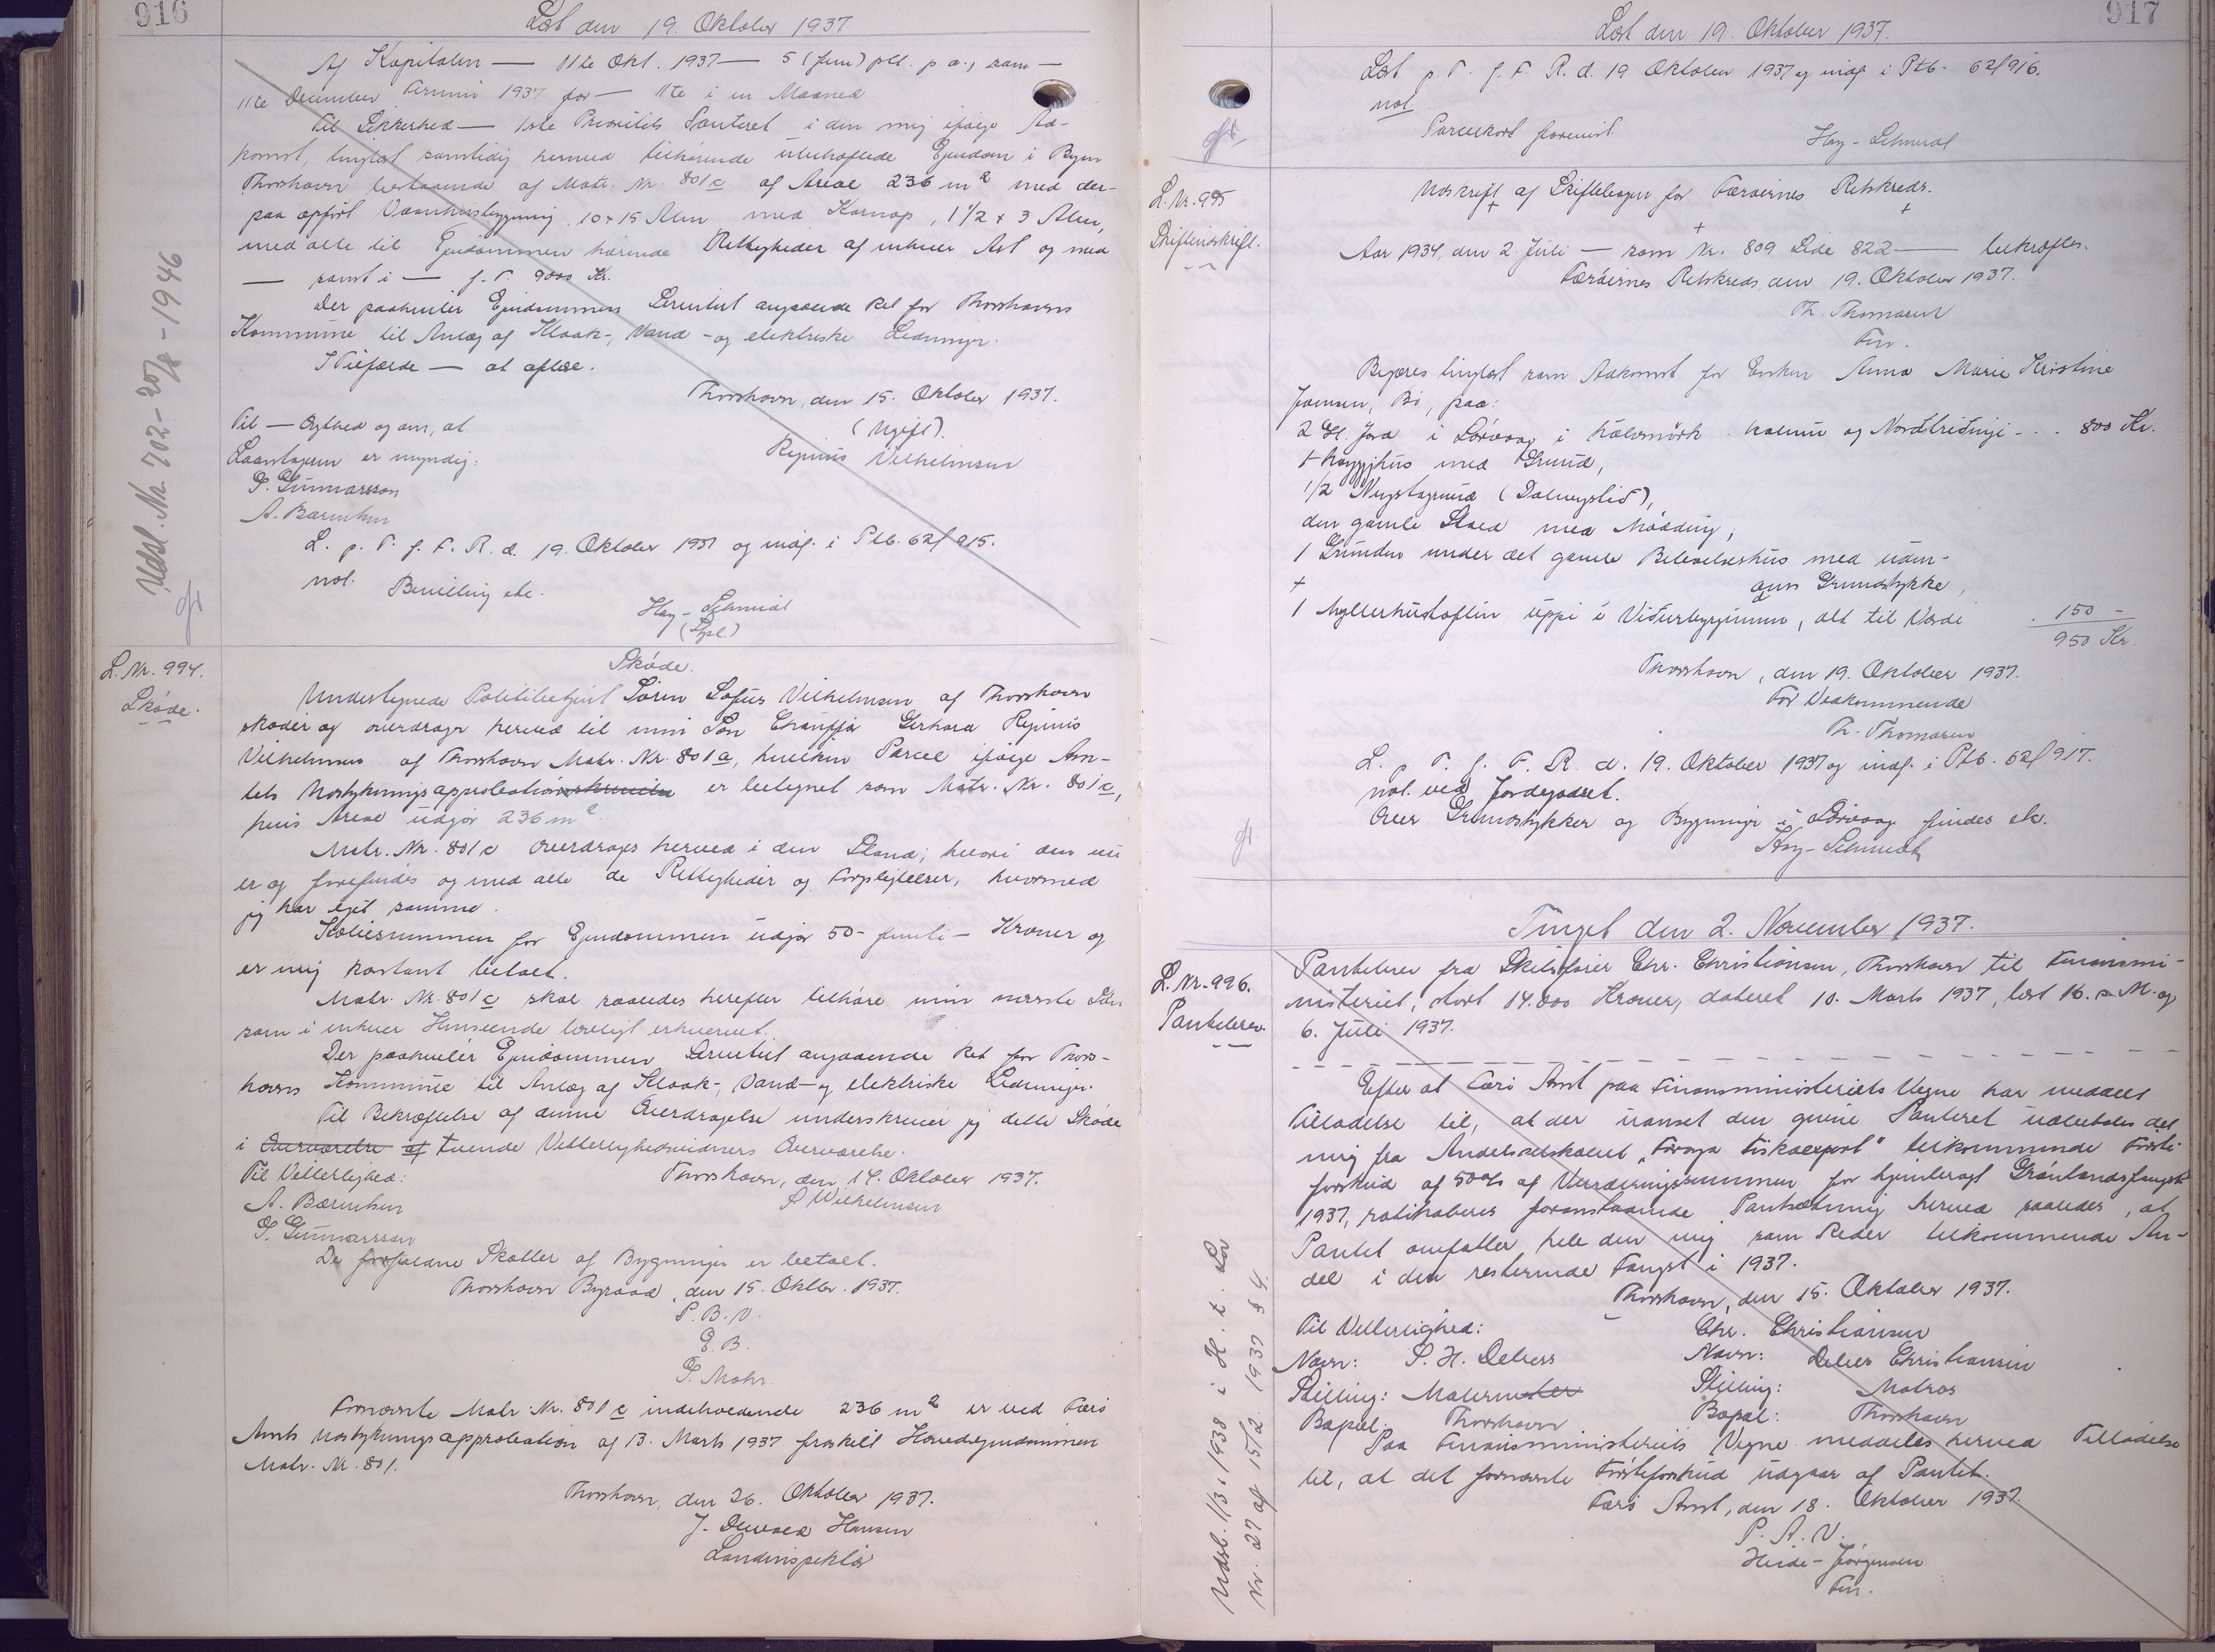 916
Læst den 19. Oktober 1937
Af Kapitalen — 11te Okt. 1937 — 5 (fem) pCt. p a., som —
11te December Termin 1937 for — 11te i en Maaned.
Til Sikkerhed — 1ste Prioritets Panteret i den mig ifølge Ad-
komst, tinglæst samtidig hermed tilhørende ubehæftede Ejendom i Byen
Thorshavn bestaaende af Matr. Nr. 801c af Areal 236 m2 med der-
paa opført Vaaningsbygning 10 x 15 Alen med Karnap, 1 1/2 x 3 Alen,
med alle til Ejendommen hørende Rettigheder af enhver Art og med
— samt i — f. T. 9000 Kr.
Der paahviler Ejendommen Servitut angaaende Ret for Thorshavns
Kommune til Anlæg af Kloak-, Vand- og elektriske Ledninger.
I Tilfælde — at aflæse.
Thorshavn, den 15. Oktober 1937.
Til — Ægthed og om, at
(Ugift).
Laantageren er myndig:
Reginus Vilhelmsen
P. Gunnarsson
A. Bærentsen
L. p. T. f. F. R. d. 19. Oktober 1937 og indf. i Ptb. 62f 915.
not.
Bevilling etc.
Hay-Schmidt
(Sgsl.)
Udsl. Nr. 702 - 20/8 - 1946
L. Nr. 994.
Skøde.
Skøde.
Undertegnede Politibetjent Sören Sofus Vilhelmsen af Thorshavn
skøder og overdrager herved til min Søn Chauffør Gerhard Reginus
Vilhelmsen af Thorshavn Matr. Nr. 801a, hvilken Parcel ifølge Am-
tets Udstykningsapprobation er betegnet som Matr. Nr. 801c,
hvis Areal udgør 236 m2
Matr. Nr. 801c overdrages herved i den Stand, hvori den nu
er og forefindes og med alle de Rettigheder og Forpligtelser, hvormed
jeg har ejet samme.
Købesummen for Ejendommen udgør 50 - femti - Kroner og
er mig kontant betalt.
Matr. Nr. 801c skal saaledes herefter tilhøre min nævnte Søn
som i enhver Henseende lovligt erhvervet.
Der paahviler Ejendommen Servitut angaaende Ret for Thors-
havns Kommune til Anlæg af Kloak-, Vand- og elektriske Ledninger.
Til Bekræftelse af denne Overdragelse underskriver jeg dette Skøde
i Overværelse af tvende Vitterlighedsvidners Overværelse.
Til Vitterlighed:
Thorshavn, den 14. Oktober 1937.
A. Bærentsen
S Vilhelmsen
P. Gunnarsson
De forfaldne Skatter af Bygninger er betalt.
Thorshavn Byraad, den 15. Oktbr. 1937.
P. B. V.
E. B.
P. Mohr.
Fornævnte Matr. Nr. 801c indeholdende 236 m2 er ved Færø
Amts Udstykningsapprobation af 13. Marts 1937 fraskilt Hovedejendommen
Matr. Nr. 801.
Thorshavn, den 26. Oktober 1937.
J. Hansen
Landinspektør
917
Læst den 19. Oktober 1937.
Læst p. T. f. F. R. d. 19. Oktober 1937 og indf. i Ptb. 62f 916.
not.
Parcelkort forevist.
Hay-Schmidt
L. Nr. 995
Skifteudskrift.
Udskrift af Skiftebogen for Færøernes Retskreds.
Aar 1934, den 2. Juli — som Nr. 809 Side 822 — bekræftes.
Færøernes Retskreds, den 19. Oktober 1937.
Th. Thomasen
Fm.
Begæres tinglæst som Adkomst for Enken Anna Marie Kristine
Joensen, Bø, paa:
2 Gl. Jord i Sørvaag i - - 800 Kr.
med Grund,
1/2
den gamle Stald med Mødding,
1 Grunden under det gamle Beboelseshus med uden-
om Grundstykke,
1 uppi í, alt til Værdi . 150 -
950 Kr.
Thorshavn, den 19. Oktober 1937.
For Vedkommende
Th. Thomasen
L. p. T. f. F. R. d. 19. Oktober 1937 og indf. i Ptb. 62f 917.
not. ved Jordegodset.
Over Grundstykker og Bygninger i Sørvaag findes ek.
Hay-Schmidt
Tinget den 2. November 1937.
L. Nr. 996.
Pantebrev.
Pantebrev fra Skibsfører Chr. Christiansen, Thorshavn til Finansmi-
nisteriet, stort 14.000 Kroner, dateret 10. Marts 1937, læst 16. s. M. og
6. Juli 1937.
Efter at Færø Amt paa Finansministeriets Vegne har meddelt
Tilladelse til, at der uanset den givne Panteret udbetales det
mig fra Andelsselskabet "Føroya Fiskaexport" tilkommende Første-
forskud af 50% af Vurderingssummen for hjembragt Grønlandsfangst
1937, ratihaberes foranstaaende Pantsætning herved saaledes, at
Pantet omfatter hele den mig som Reder tilkommende An-
del i den resterende Fangst i 1937.
Thorshavn, den 15. Oktober 1937.
Til Vitterlighed:
Chr. Christiansen
Navn: P. H. Debess
Navn: Christiansen
Stilling: Malermester
Stilling: Matros
Bopæl: Thorshavn
Bopæl: Thorshavn
Paa Finansministeriets Vegne meddeles herved Tilladelse
til, at det fornævnteFørsteforskud udgaar af Pantet.
Færø Amt, den 18. Oktober 1937.
P. A. V.
Heide-Jørgensen
Fm.
Udsl. 1/3 1938 i H. t. Lov
Nr. 27 af 15/2 1937 § 4.